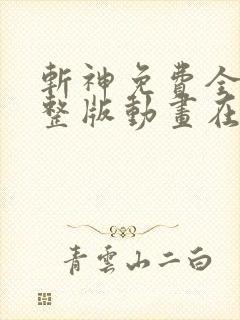 斬神免費全
整版動畫在
青雲山二白